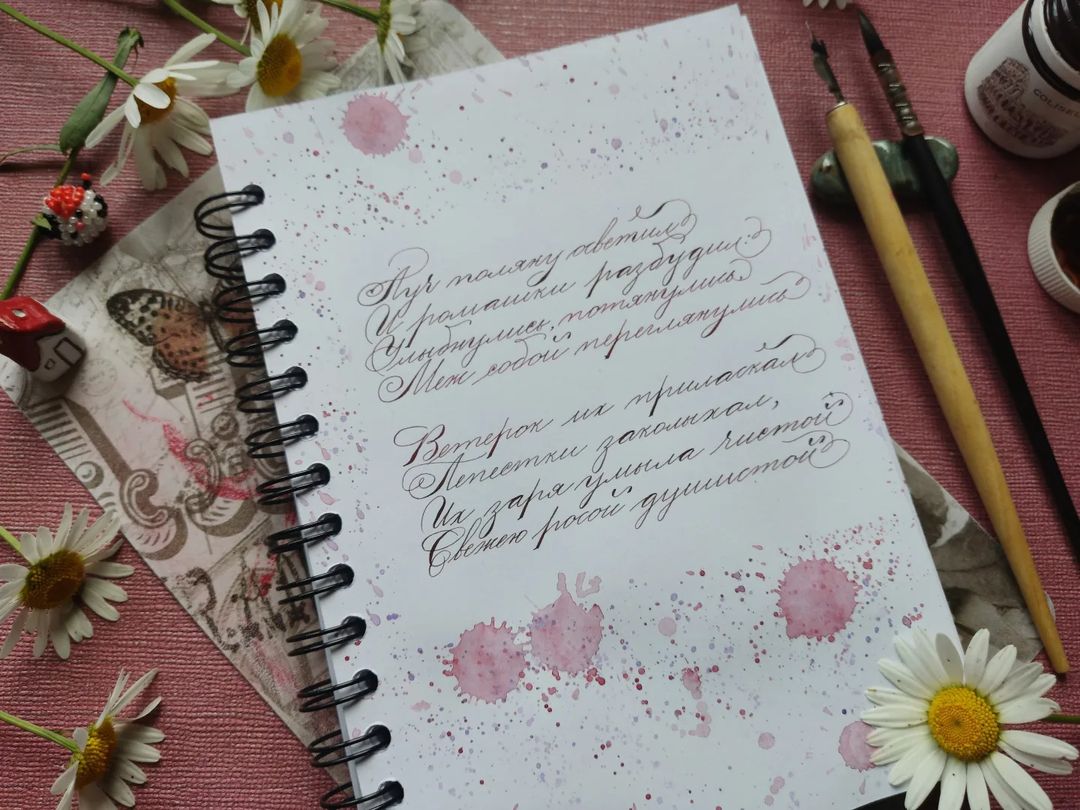 Луч поляну осветил
И ромашки разбудил:
Улыбнулись, потянулись
Меж собой переглянулись
Ветерок их приласкал
Лепестки заколыхал,
Их заря умыла чистой
Свежею росой душистой